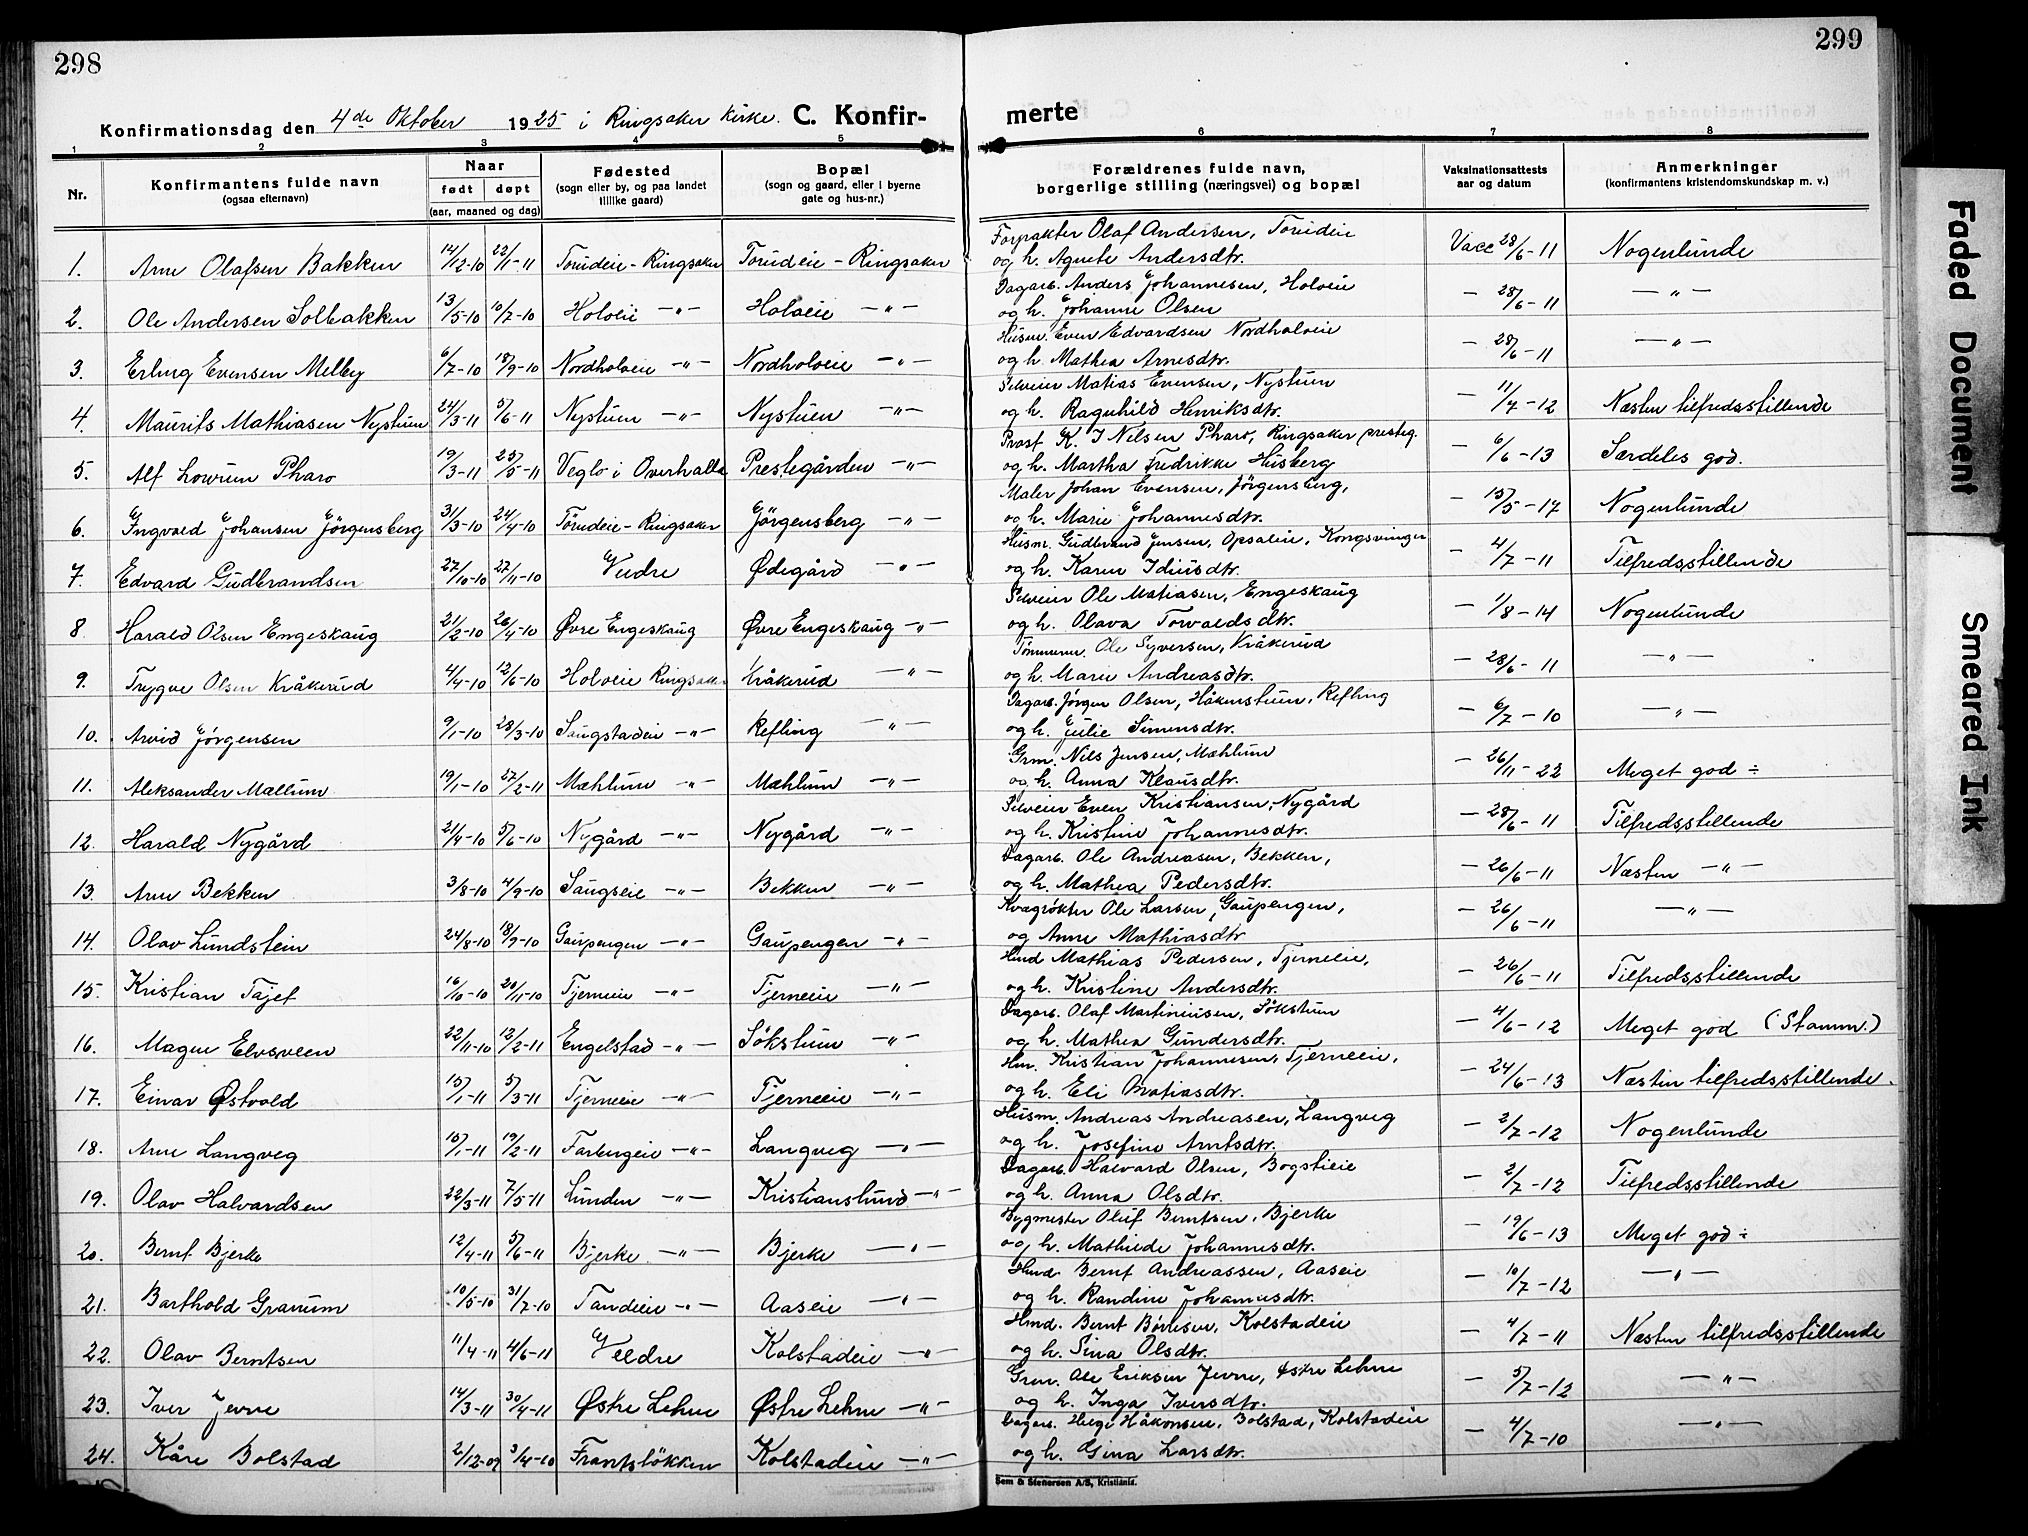 298
299
Konfirmationsdag den 4de Oktober 1925 i Ringsaker Kirke. C. Konfir-
merte
1 2 3 4 5 6 7 8
Nr.
Konfirmantens fulde navn
(ogsaa efternavn)
Naar
født døpt
(aar, maaned og dag)
Fødested
(sogn eller by, og paa landet
tillike gaard)
Bopæl
(sogn og gaard, eller i byerne
gate og hus-nr.)
Forældrenes fulde navn,
borgerlige stilling (næringsvei) og bopæl
Vaksinationsattests
aar og datum
Anmerkninger
(konfirmantens kristendomskundskap m. v.)
Forpakter Olaf Andersen, Torudeie
1. Arne Olafsen Bakken 14/12-10 22/1-11 Torudeie - Ringsaker Torudeie - Ringsaker og h. Agnete Andersdtr. Vacc 28/6-11 Nogenlunde
Dagarb. Anders Johannesen, Holveie
2. Ole Andersen Solbakken 13/5-10 10/7-10 Holveie -"- Holveie -"- og h. Johanne Olsen - 28/6-11 -"-
Husm. Even Edvardsen Nordholveie
3. Erling Evensen Melby 6/7-10 18/9-10 Nordholveie -"- Nordholveie -"- og h. Mathea Arnesdtr. - 28/6-11 -"-
Selveier Matias Evensen, Nystuen
4. Maurits Mathiasen Nystuen 24/3-11 5/6-11 Nystuen -"- Nystuen -"- og h. Ragnhild Henriksdtr. - 11/7-12 Næsten tilfredsstillende
Prost K. J Nilsen Pharo, Ringsaker presteg.
5. Alf Lowum Pharo 19/3-11 25/5-11 Veglo i Overhalla Prestegården -"- og h. Martha Fredrikke Husberg - 6/6-13 Særdeles god.
Maler Johan Evensen, Jørgensberg,
6. Ingvald Johansen Jørgensberg 31/3-10 24/4-10 Torudeie - Ringsaker Jørgensberg -"- og h. Marie Johannesdtr. - 15/5-17 Nogenlunde
Husm. Gudbrand Jensen, Opsaleie, Kongsvinger
7. Edvard Gudbrandsen 27/10-10 27/11-10 Veldre Ødegård -"- og h. Karen Idiusdtr. - 4/7-11 Tilfredsstillende
Selveier Ole Matiasen, Engeskaug
8. Harald Olsen Engeskaug 21/2-10 26/4-10 Øvre Engeskaug Øvre Engeskaug -"- og h. Olava Torvaldsdtr. - 1/8-14 Nogenlunde
Tømmerm. Ole Syversen, Kråkerud
9. Trygve Olsen Kråkerud 4/4-10 12/6-10 Holveie Ringsaker Kråkerud -"- og h. Marie Andreasdtr. - 28/6-11 -"-
Dagarb. Jørgen Olsen, Håkenstuen, Refling
10. Arvid Jørgensen 9/1-10 28/3-10 Saugstadeie -"- Refling -"- og h. Julie Simensdtr. - 6/7-10 -"-
Grm. Nils Jensen, Mæhlum
11. Aleksander Mællum 19/1-10 27/2-11 Mæhlum -"- Mæhlum -"- og h. Anna Klausdtr. - 26/11-22 Meget god ÷
Selveier Even Kristiansen, Nygård
12. Harald Nygård 21/4-10 5/6-10 Nygård -"- Nygård -"- og h. Kristine Johannesdtr. - 28/6-11 Tilfredsstillende
Dagarb. Ole Andreasen, Bekken,
13. Arne Bekken 3/8-10 4/9-10 Saugseie -"- Bekken -"- og h. Mathea Pedersdtr. - 26/6-11 Næsten -"-
Kvægrøkter Ole Larsen, Gaupengen,
14. Olav Lundstein 24/8-10 18/9-10 Gaupengen -"- Gaupengen -"- og Anne Mathiasdtr. - 26/6-11 -"-
Hmd Mathias Pedersen, Tjerneie,
15. Kristian Tajet 16/10-10 20/11-10 Tjerneie -"- Tjerneie -"- og h. Kristine Andersdtr. - 26/6-11 Tilfredsstillende
Dagarb. Olaf Martiniusen, Søkstuen
16. Magne Elvsveen 22/11-10 12/2-11 Engelstad -"- Søkstuen -"- og h. Mathea Gundersdtr. - 4/6-12 Meget god (Stamm.)
Hm. Kristian Johannesen, Tjerneeie,
17. Einar Østvold 15/1-11 5/3-11 Tjerneie -"- Tjerneeie -"- og h. Eli Matiasdtr. - 24/6-13 Næsten tilfredsstillende.
Husm. Andreas Andreasen, Langveg
18. Arne Langveg 15/1-11 19/2-11 Farbergeie -"- Langveg -"- og h. Josefine Arntsdtr. - 2/7-12 Nogenlunde
Dagarb. Halvard Olsen, Bogstieie
19. Olav Halvardsen 22/3-11 7/5-11 Lunden -"- Kristianslund -"- og h. Anna Olsdtr. - 2/7-12 Tilfredsstillende
Bygmester Oluf Berntsen, Bjerke
20. Bernt Bjerke 12/4-11 5/6-11 Bjerke -"- Bjerke -"- og h. Mathilde Johannesdtr. - 19/6-13 Meget god ÷
Hmd. Bernt Andreassen, Aaseie
21. Barthold Granum 10/5-10 31/7-10 Tandeie -"- Aaseie -"- og h. Randine Johannesdtr. - 10/7-12 -"-
Hmd. Bernt Børresen, Kolstadeie
22. Olav Berntsen 11/4-11 4/6-11 Veldre Kolstadeie -"- og h. Sina Olsdtr. - 4/7-11 Næsten tilfredsstillende
Grm. Ole Eriksen Jevne, Østre Lehne
23. Iver Jevne 14/3-11 30/4-11 Østre Lehne Østre Lehne -"- og h. Inga Iversdtr. - 5/7-12 -"-
Dagarb. Helge Håkonsen, Bolstad, Kolstadeie
24. Kåre Bolstad 2/12-09 3/4-10 Frantsløkken Kolstadeie -"- og h. Gina Larsdtr. - 4/7-10 -"-
Sem & Stenersen A/S, Kristiania.
Faded Document
Smeared Ink